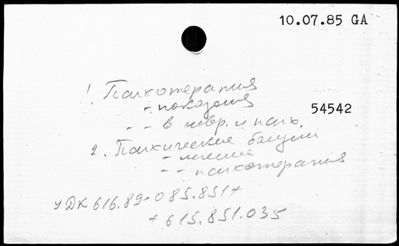 10.07.85 GA
1. Психотерапия
- показания
54542
- - в невр. и псих.
2. Психические болезни
- лечение
- - психотерапия
УДК 616.89-085.851+
+615.851.035